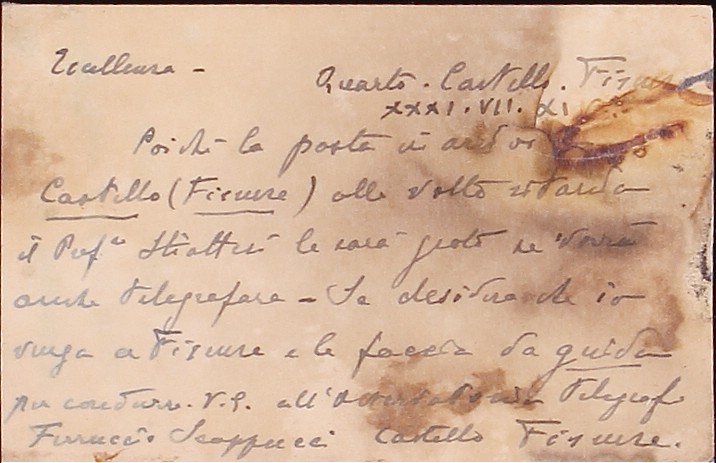 Eccellenza -
Quarto. Castello. Firenze
XXXI. VII. XI
Poichè la posta in arrivo
Castello (Firenze) alle volte ritarda
il Prof. Stiattesi le sarà grato se vorrà
anche telegrafare - Se desidera che io
venga a Firenze e le faccia da guida
per condurre V.E. all'Osservatorio telegrafi
Ferruccio Scappucci Castello Firenze.